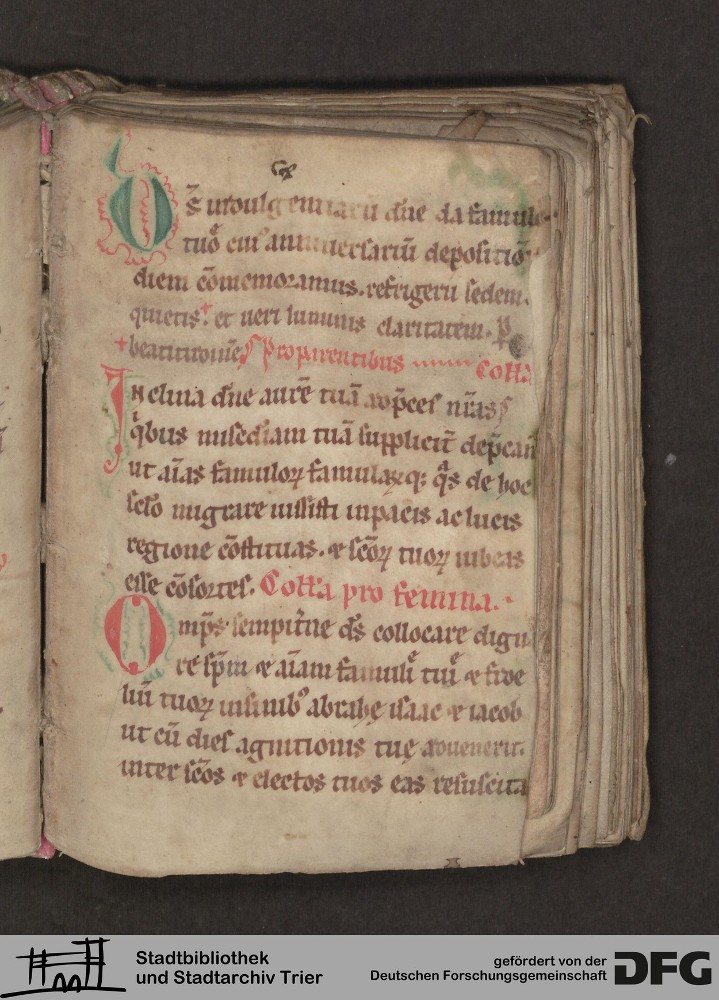 Ds indulgentiarū dne da famul
tuo᷒ cui᷒ anniuersariū depositiōis
diem cōmemoramus. refrigerii sedem.
quietis. et ueri luminis claritatem. P
+ beatitudinē Pro parentibus Coll̄a
Inclina dne aurē tuā ad p̄ces nr̄as
qͥbus misedīam tuā supplicit̄ dep̄cam̄
ut aīas famuloꝝ famularꝝqꝫ qͣs de hoc
sclo migrare iussisti in pacis ac lucis
regione cōstituas. ⁊ scōꝝ tuoꝝ iubeas
esse cōsortes. Coll̄a pro femina.
Omp̄s sempit̄ne ds̄ collocare digna
re sp̄m ⁊ aīam famuli tui ⁊ fide
liū tuoꝝ in sinib᷒ abrahę isaac ⁊ iacob
ut cū dies agnitionis tuę aduenerit.
inter scōs ⁊ electos tuos eas resuscita
Stadtbibliothek
und Stadtarchiv Trier
gefördert von der
Deutschen Forschungsgemeinschaft DFG